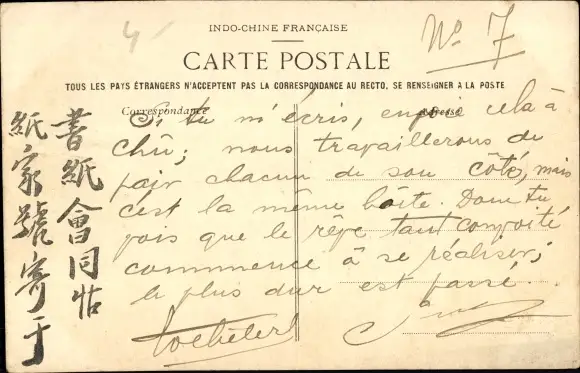 INDO-CHINE FRANÇAISE
Nº 7
CARTE POSTALE
TOUS LES PAYS ÉTRANGERS N'ACCEPTENT PAS LA CORRESPONDANCE AU RECTO, SE RENSEIGNER A LA POSTE
Correspondance
Adresse
Si tu m'écris, envoie cela à
chû; nous travaillerons de
pair chacun de son côté, mais
c'est la même boîte. Donc tu
vois que le rêve tant convoité
commence à se réaliser;
le plus dur est passé.
書紙會同
紙家號寄于